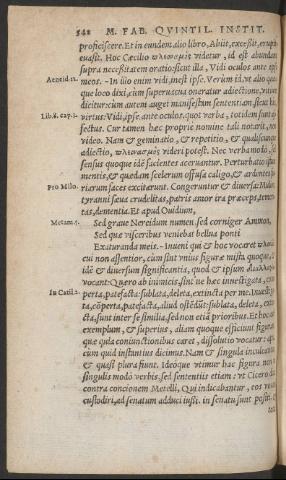 542 M. FAB. QVINTIL. INSTIT.
proficiscere. Et in eundem alio libro, Abiit, excessit, erupit
euasit. Hoc Cæcilio πλεονασμὸς videtur, id est abundans
supra necessitatem oratio: sicut illa, Vidi oculos ante ipse
Aeneid. 12. meos. - In illo enim vidi, inest ipse. Verum id, vt alio quo
que loco dixi, cum superuacua oneratur adiectione, vitium
dicitur: cum autem auget manifestam sententiam, sicut hic,
Lib. 8. cap. 3. virtus: Vidi, ipse, ante oculos. quot verba, totidem sunt af
fectus. Cur tamen hæc proprie nomine tali notarit, non
video. Nam & geminatio, & repetitio, & qualiscunque
adiectio, πλεονασμὸς videri potest. Nec verba modo, sed
sensus quoque idē facientes aceruantur. Perturbatio istum
mentis, & quedam scelerum offusa caligo, & ardentes fu
Pro Milo. riarum faces excitarunt. Congeruntur & diuersa: Mulier,
tyranni sæua crudelitas, patris amor ira præceps, temeri
tas, dementia. Et apud Ouidium,
Metam. 5. Sed graue Nereidum numen, sed corniger Ammon,
Sed quæ visceribus veniebat bellua ponti
Exaturanda meis. - Inueni qui & hoc vocaret
cui non assentior, cum sint vnius figuræ mista quoque, &
idē & diuersum significantia, quod & ipsum
vocant: Quæro ab inimicis, sint ne hæc inuestigata, com
In Catil. 2. perta, patefacta: sublata, deleta, extincta per me. Inuestiga
ta, cōperta, patefacta, aliud ostēdūt: sublata, deleta, extin
cta, sunt inter se similia, sed non etiā prioribus. Et hoc &
exemplum, & superius, aliam quoque efficiunt figuram
quæ quia coniunctionibus caret, dissolutio vocatur: apta
cum quid instantius dicimus. Nam & singula inculcantur
& quasi plura fiunt. Ideoque vtimur hac figura non in
singulis modo verbis, sed sententiis etiam: vt Cicero dicit
contra concionem Metelli, Qui indicabantur, eos vocari
custodiri, ad senatum adduci iussi. in senatu sunt positi. Et